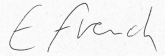 E French